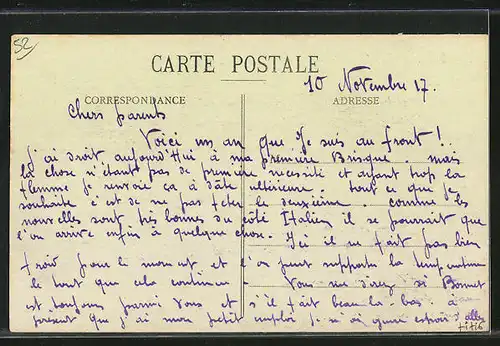 52
CARTE POSTALE
10 Novembre 17.
CORRESPONDANCE
ADRESSE
Chers parents
Voici un an que Je suis au front !..
J'ai droit aujourd'Hui à ma première Brisque. mais
la chose n'étant pas de première necessité et ayant trop la
flemme je renvoie ça à date ultérieure. tout ce que je
souhaite c'est de ne pas feter le deuxième. comme les
nouvelles sont très bonnes du côté Italien il se pourrait que
l'on arrive enfin à quelque chose. Ici il ne fait pas bien
froid pour le moment et l'on peut supporter la temperature
le tout que cela continue. Vous me direz si Bonnet
est toujours parmi vous et s'il fait beau la-bas à
présent que j'ai mon petit emploi je n'ai guère espoir d'aller